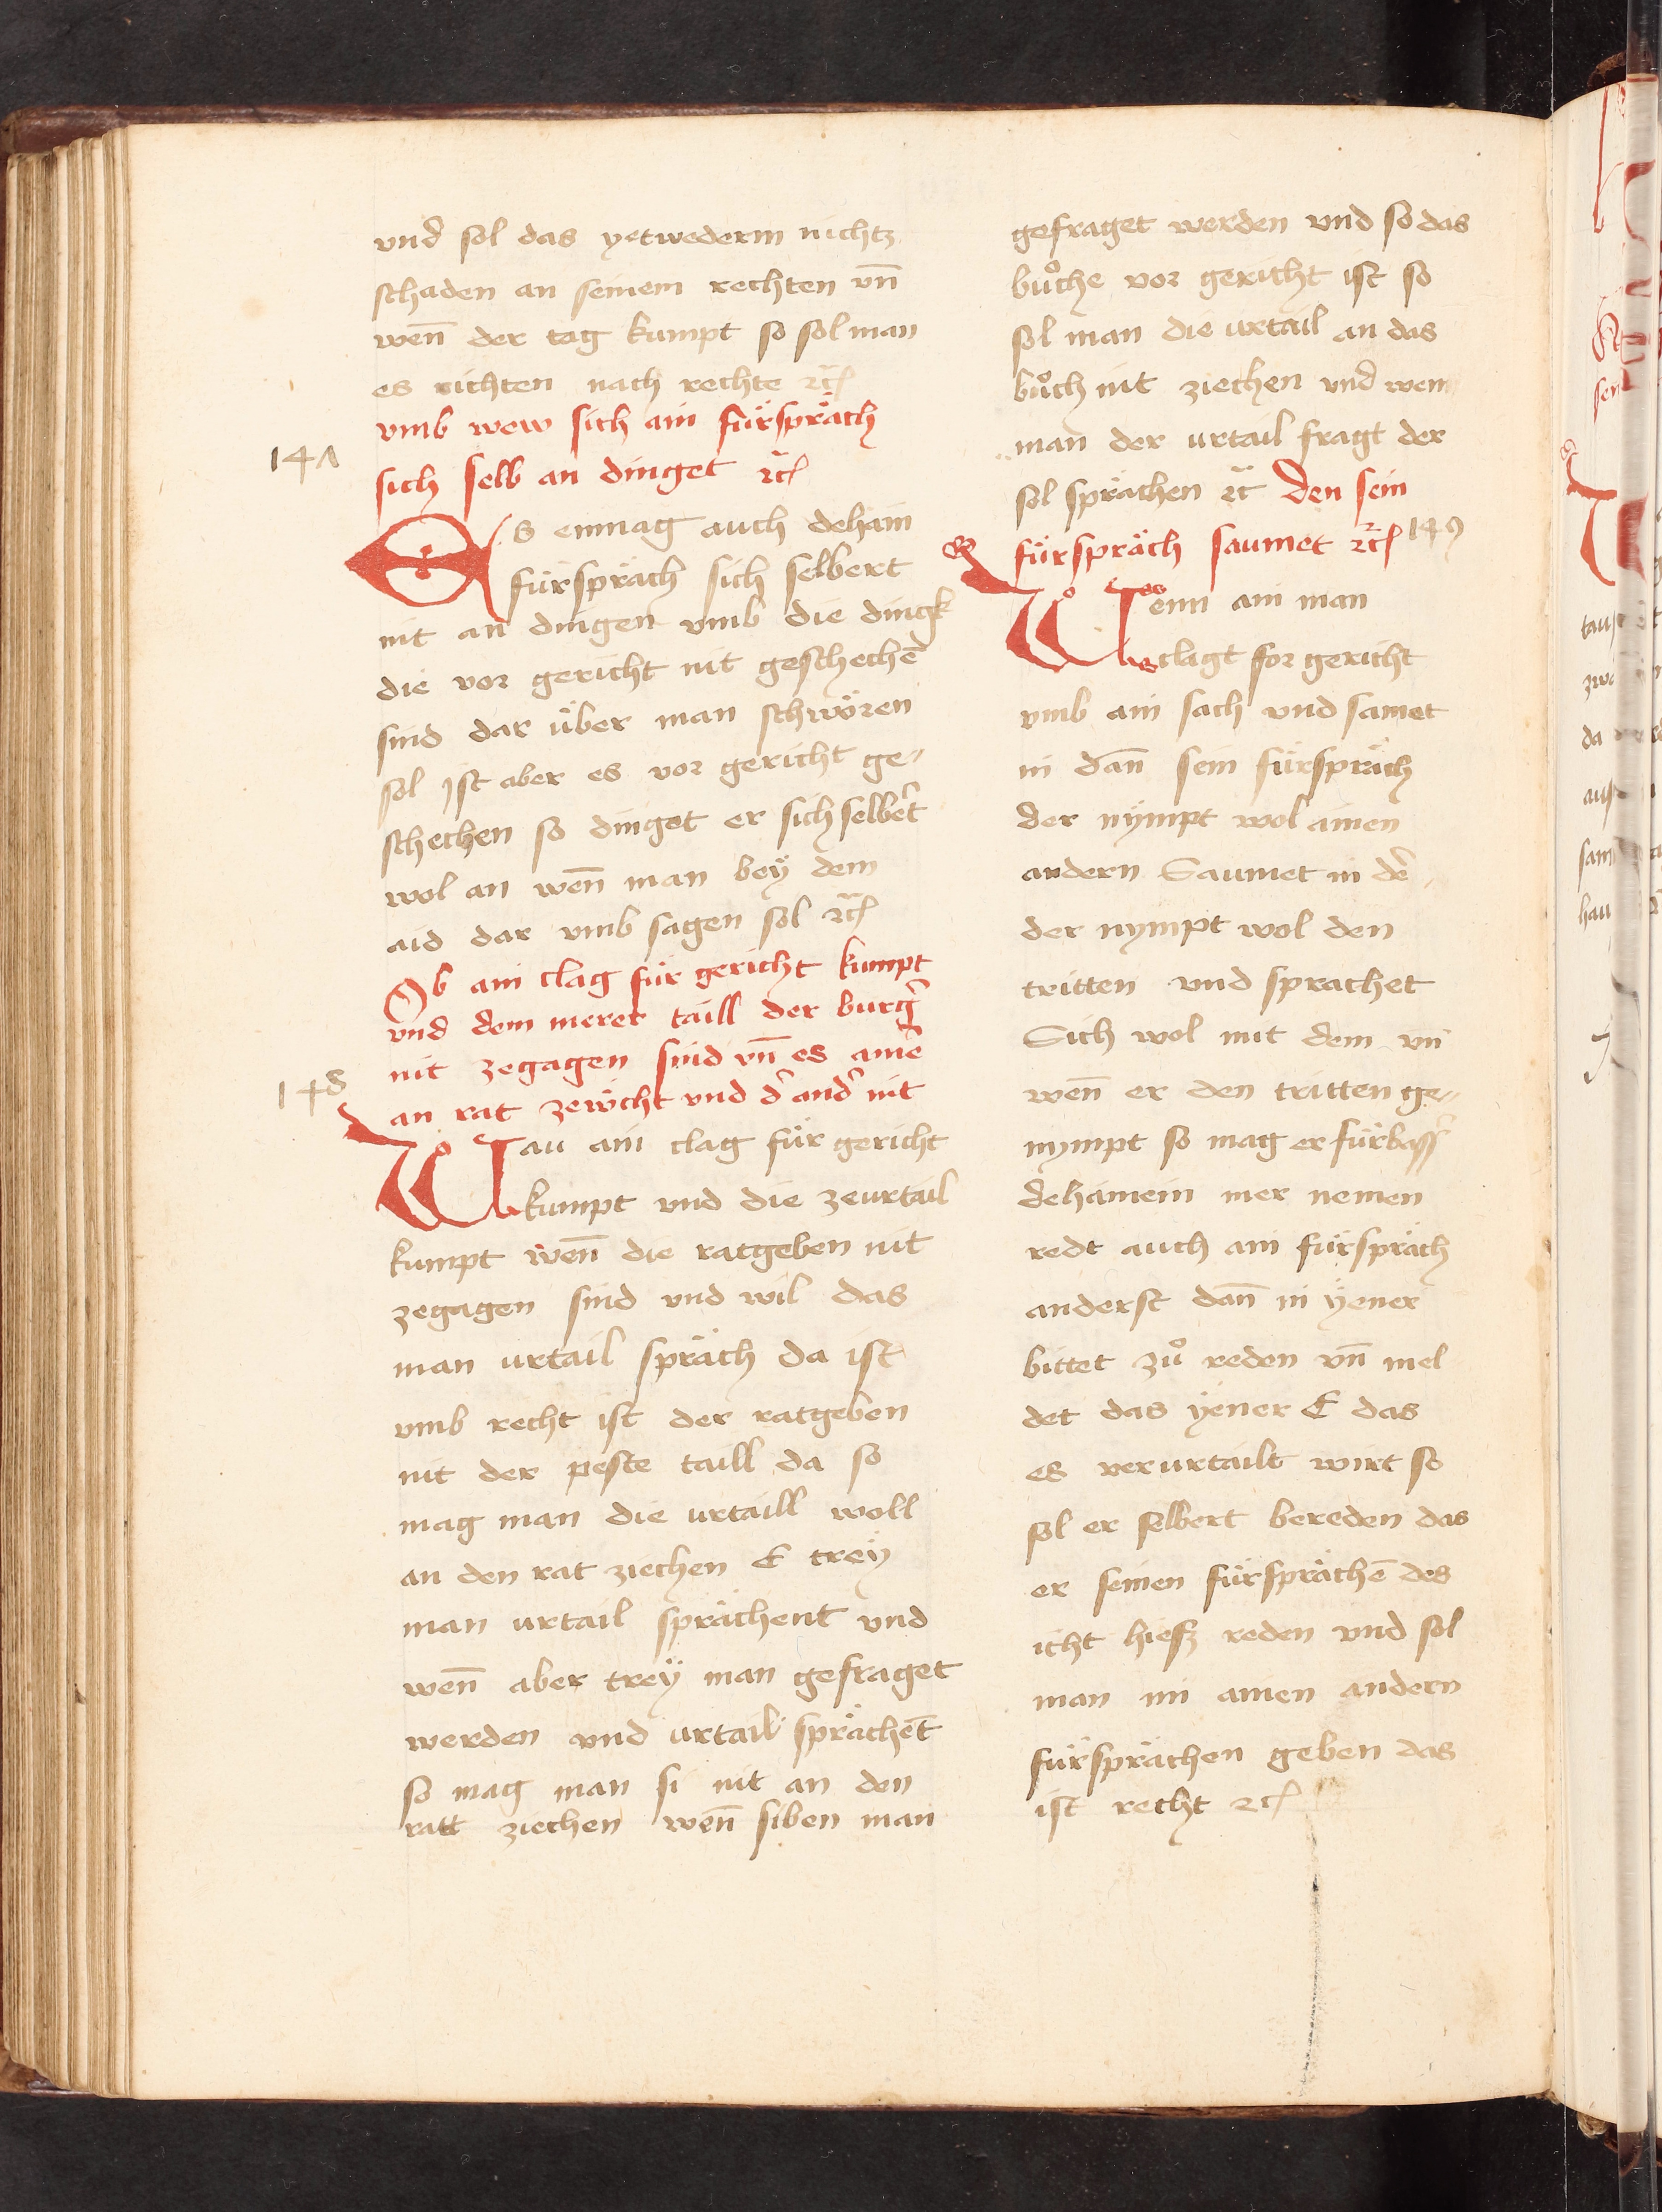 und sol das yetwederm nichtz
schaden an seinem rechten vn̄
wen̄ der tag kumpt so sol man
es richten nach rechte ꝛc̄
vmb wew sich ain fürspräch
147
sich selb an dinget ꝛc̄
Es enmag auch dehain
fürspräch sich selbert
nit an dingen vmb die dingk
die vor gericht nit geschechē
sind dar über man schwören
sol Ist aber es vor gericht ge-
schechen so dinget er sich selbert
wol an wen̄ man beÿ dem
aid dar vmb sagen sol ꝛc̄
Ob ain clag für gericht kumpt
vnd dem merer taill der burg̑
nit zegagen sind vn̄ es ainē
148
an rat zewcht vnd d̑ and̑ nit
Wau ain clag für gericht
kumpt vnd die zeurtail
kumpt wen̄ die ratgeben nit
zegagen sind vnd wil das
man urtail spräch da ist
vmb recht ist der ratgeben
nit der peste taill da so
mag man die urtaill woll
an den rat ziechen E treÿ
man urtail sprächent vnd
wen̄ aber treÿ man gefraget
werden vnd urtail sprächēt
so mag man si nit an den
ratt ziechen wen̄ siben man
gefraget werden vnd so das
bůche vor gericht ist so
sol man die urtail an das
bůch nit ziechen vnd wem
man der urtail fragt der
sol sprächen ꝛc̄ den sein
fürspräch saumet ꝛc̄ 149
Wenn ain man
clagt for gericht
vmb ain sach vnd samet
in dan̄ sein fürspräch
der nÿmpt wol ainen
andern Saumet in dē
der nympt wol den
tritten vnd sprachet
Sich wol mit dem vn̄
wen̄ er den tritten ge-
nympt so mag er fürbass̑
dehainein mer nemen
redt auch ain fürspräch
anderst dan̄ in ÿener
bittet zů reden vn̄ mel
det das ÿener E das
es verurtailt wirt so
sol er selbert bereden das
er seinen fürsprächē des
icht hiesz reden vnd sol
man im ainen andern
fürsprächen geben das
ist recht ꝛc̄